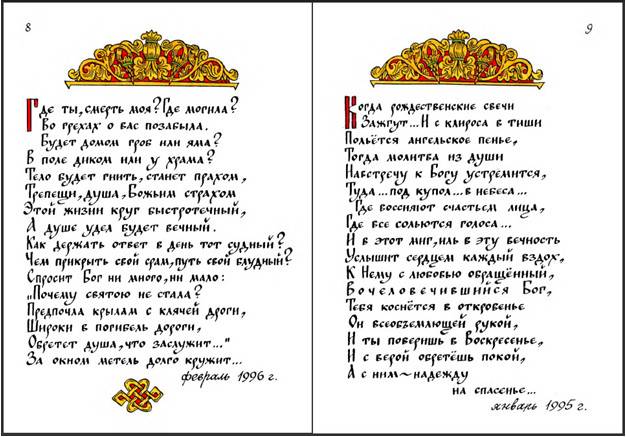 8
Где ты, смерть моя? Где могила?
Во грехах о вас позабыла.
Будет домом гроб или яма?
В поле диком или у храма?
Тело будет гнить, станет прахом,
Трепещи, душа, Божьим страхом
Этой жизни круг быстротечный,
А душе удел будет вечный.
Как держать ответ в день тот судный?
Чем прикрыть свой срам, путь свой блудный?
Спросит Бог ни много, ни мало:
„Почему святою не стала?
Предпочла крылам с клячей дроги,
Широки в погибель дороги,
Обретет душа, что заслужит..."
За окном метель долго кружит...
февраль 1996 г.
9
Когда рождественские свечи
Зажгут... И с клироса в тиши
Польётся ангельское пенье,
Тогда молитва из души
Навстречу к Богу устремится,
Туда... под купол... в небеса...
Где воссияют счастьем лица,
Где все сольются голоса...
И в этот миг, иль в эту вечность
Услышит сердцем каждый вздох,
К Нему с любовью обращённый,
Вочеловечившийся Бог,
Тебя коснётся в откровенье
Он всеобземлющей рукой,
И ты поверишь в Воскресенье,
И с верой обретёшь покой,
А с ним~надежду
на спасенье...
январь 1995 г.